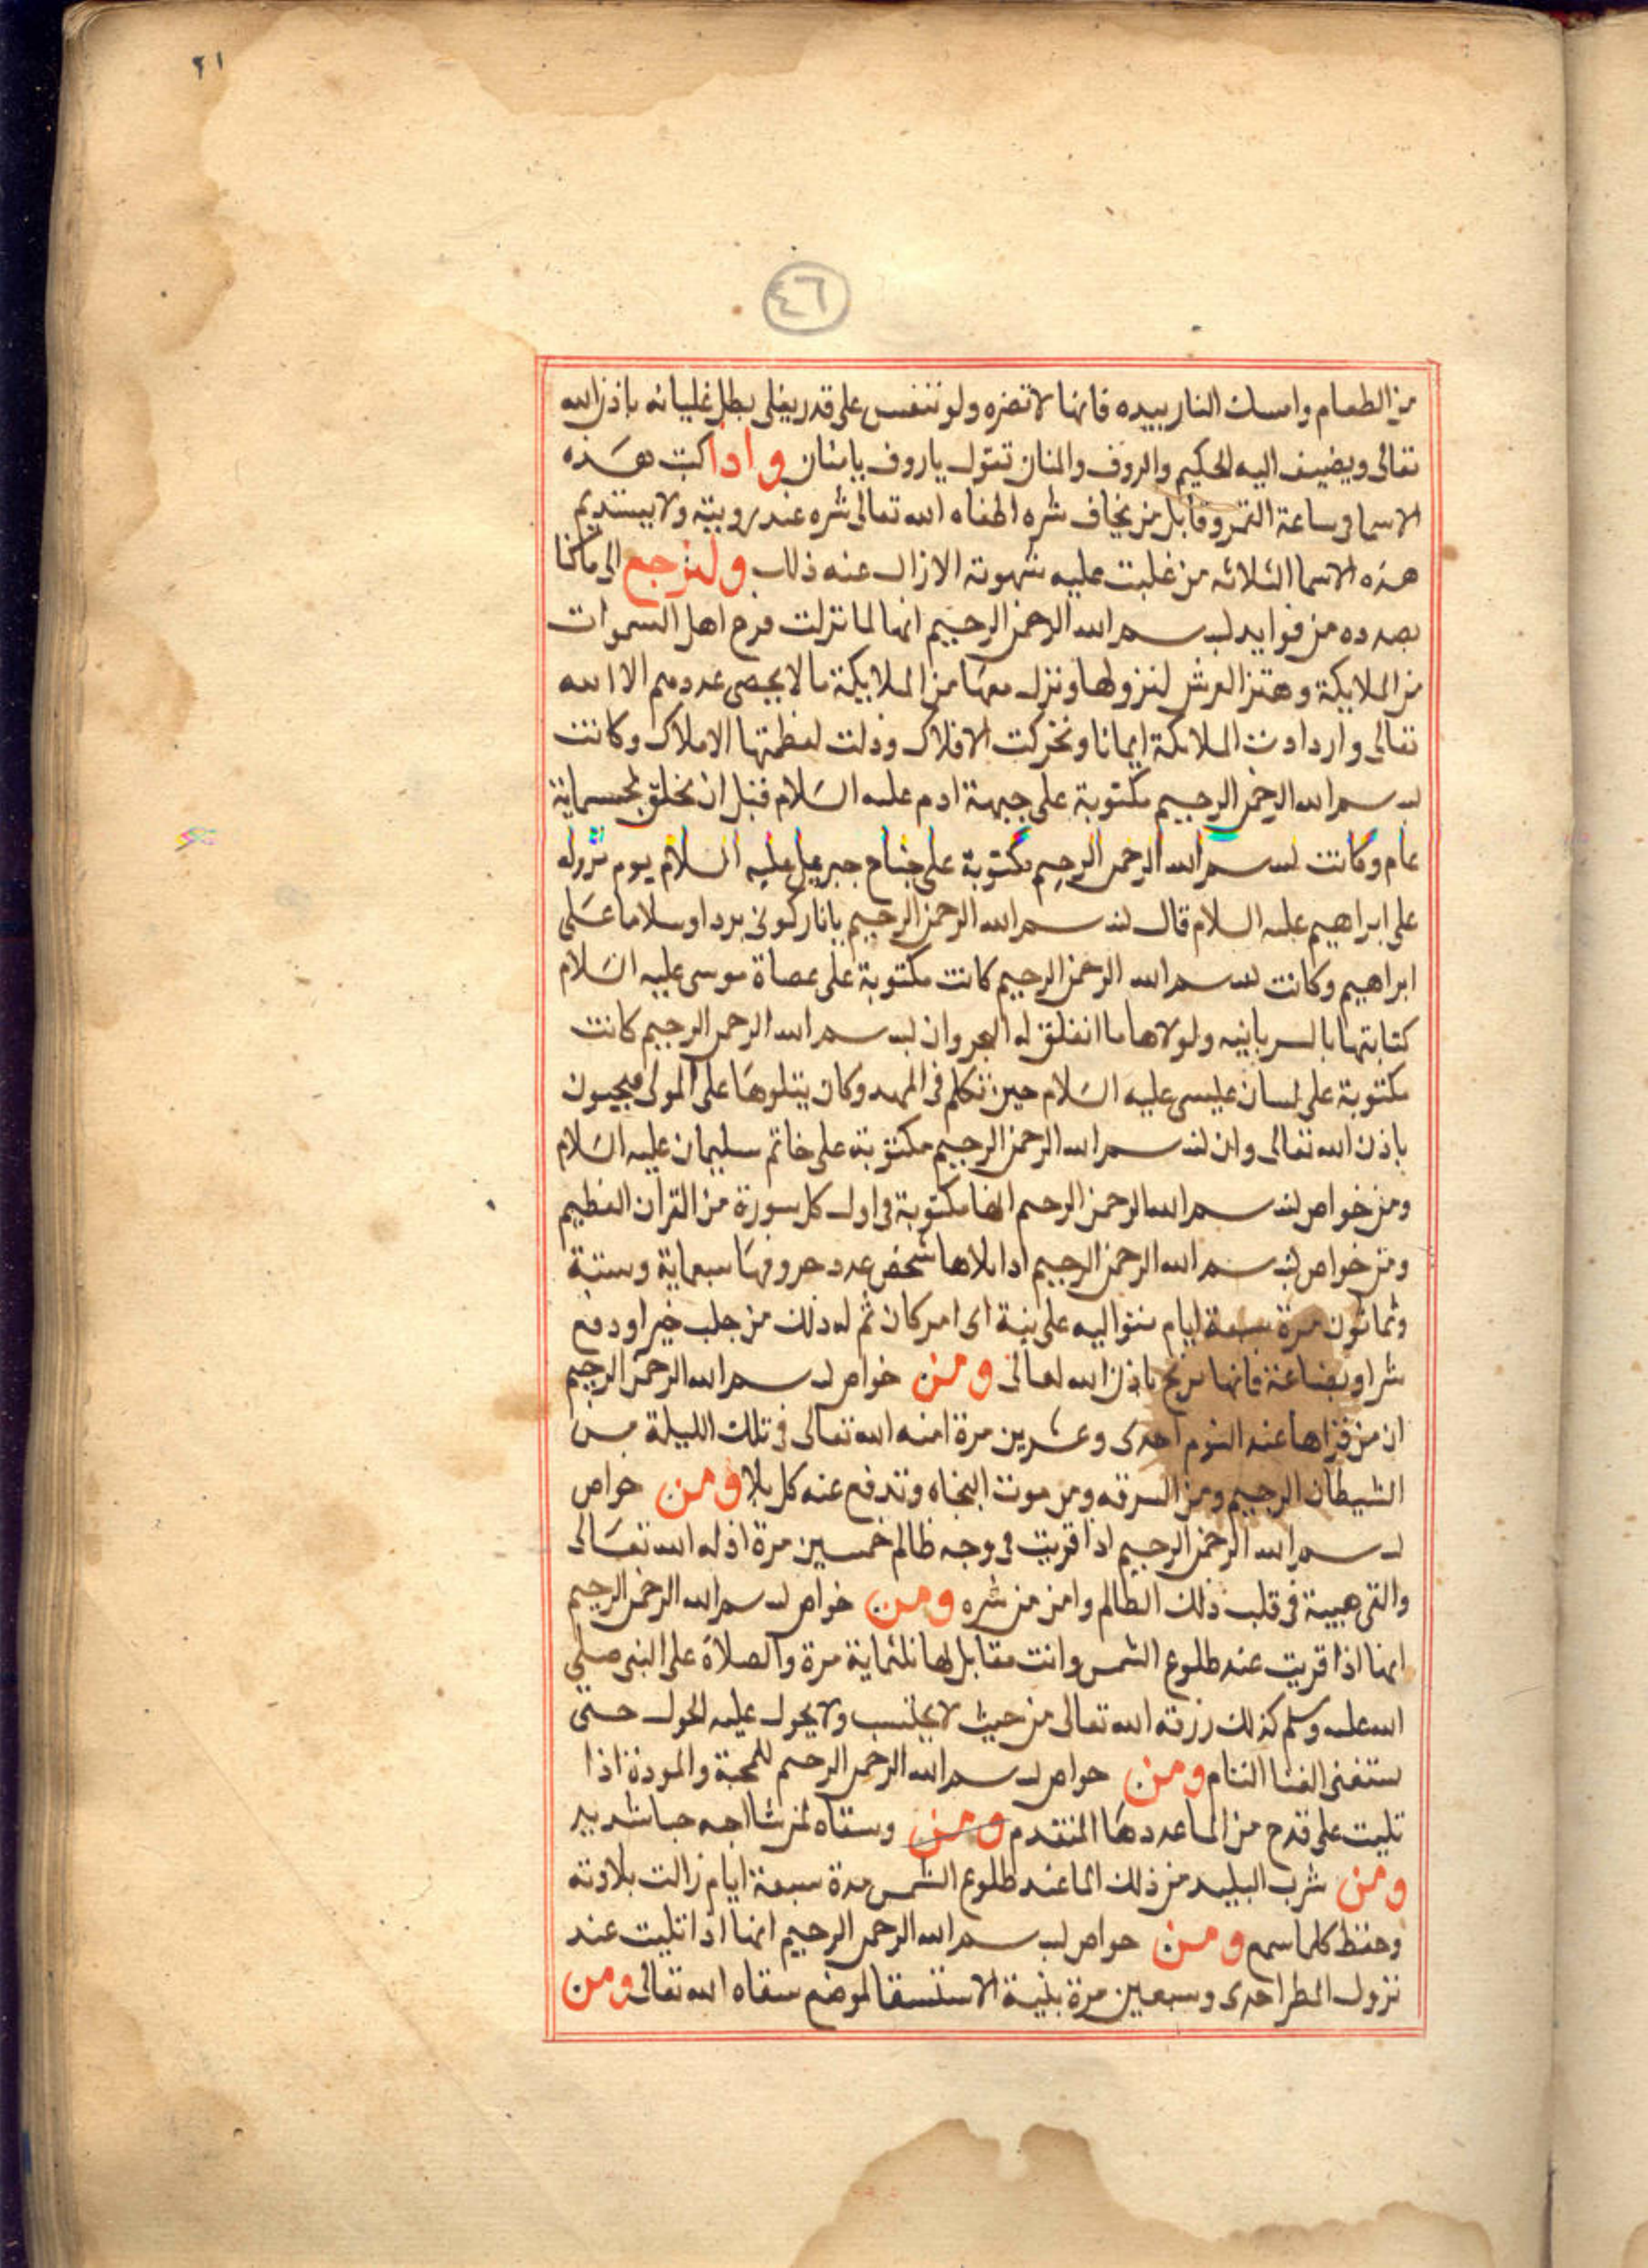 ٢١
٤٦
من الطعام وامسك النار بيده فانها لا تضره ولو تنفس على قدر يغلى بطل غليانه باذن الله
تعالى ويضيف اليه الحكيم والروف والمنان تقول ياروف يامنان واذا كتبت هذه
الاسما فى ساعة القمر وقابل من يخاف شره اطفاه الله تعالى شره عند رويته ولا يستديم
هذه الاسما الثلاثه من غلبت عليه شهوته الا زال عنه ذلك ولنرجع الى ما كنا
بصدده من فوايد بسم الله الرحمن الرحيم انها لما نزلت فرح اهل السموات
من الملايكة وهتز العرش لنزولها ونزل معها من الملايكة ما لا يحصى عددهم الا الله
تعالى وازدادت الملائكة ايمانا وتحركت الافلاك وذلت لعظمتها الاملاك وكانت
بسم الله الرحمن الرحيم مكتوبة على جبهة ادم عليه السلام قبل ان يخلق بخمسماية
عام وكانت بسم الله الرحمن الرحيم مكتوبة على جناح جبريل عليه السلام يوم نزوله
على ابراهيم عليه السلام قال بسم الله الرحمن الرحيم يانار كونى بردا وسلاما على
ابراهيم وكانت بسم الله الرحمن الرحيم كانت مكتوبة على عصاة موسى عليه السلام
كتابتها بالسريانيه ولولاها ما انفلق له البحر وان بسم الله الرحمن الرحيم كانت
مكتوبة على لسان عيسى عليه السلام حين تكلم فى المهد وكان يتلوها على الموتى فيحيون
باذن الله تعالى وان بسم الله الرحمن الرحيم مكتوبة على خاتم سليمان عليه السلام
ومن خواص بسم الله الرحمن الرحيم انها مكتوبة فى اول كل سورة من القران العظيم
ومن خواص بسم الله الرحمن الرحيم اذا تلاها شخص عدد حروفها سبعماية وستة
وثمانون مرة سبعة ايام متواليه على نية اى امر كان تم له ذلك من جلب خير او دفع
شر او بضاعة فانها تربح باذن الله تعالى ومن خواص بسم الله الرحمن الرحيم
ان من قراها عند النوم احدى وعشرين مرة امنه الله تعالى فى تلك الليلة من
الشيطان الرجيم ومن السرقه ومن موت الفجاه وتدفع عنه كل بلا ومن خواص
بسم الله الرحمن الرحيم اذا قريت فى وجه ظالم خمسين مرة اذله الله تعالى
والقى هيبة فى قلب ذلك الظالم وامن من شره ومن خواص بسم الله الرحمن الرحيم
انها اذا قريت عند طلوع الشمس وانت مقابل لها ثلثماية مرة والصلاة على النبى صلى
الله عليه وسلم كذلك رزقه الله تعالى من حيث لا يحتسب ولا يحول عليه الحول حتى
يستغنى الغنا التام ومن خواص بسم الله الرحمن الرحيم للمحبة والمودة اذا
تليت على قدح من الما عددها المتقدم ومن وسقاه لمن شا احبه حبا شديد
ومن شرب البليد من ذلك الما عند طلوع الشمس مدة سبعة ايام زالت بلادته
وحفظ كلما سمع ومن خواص بسم الله الرحمن الرحيم انها اذا تليت عند
نزول المطر احدى وسبعين مرة بنية الاستسقا لموضع سقاه الله تعالى ومن